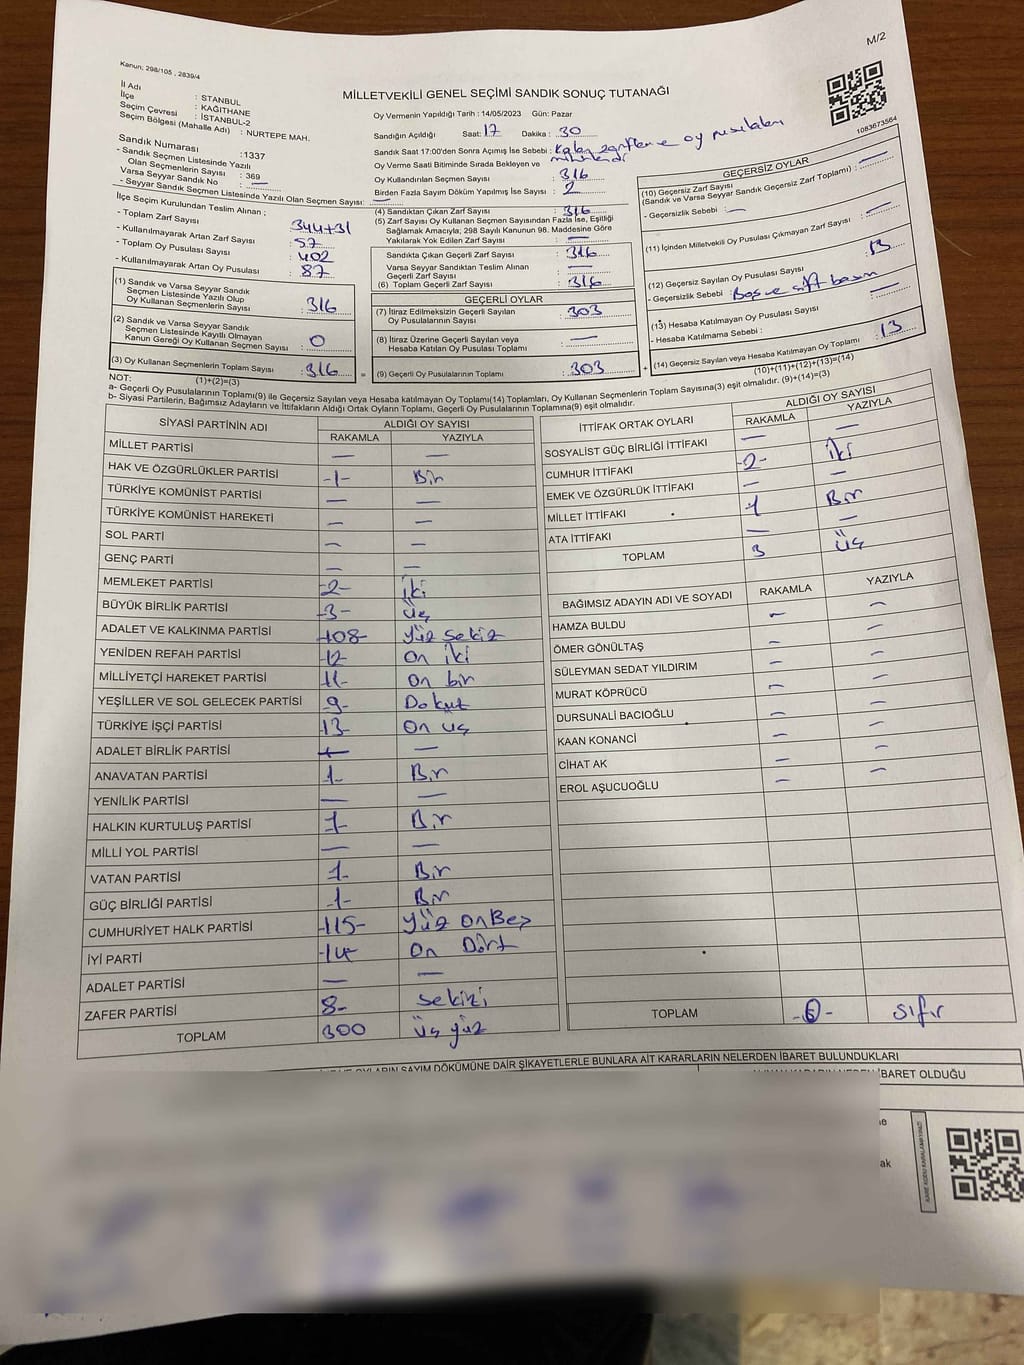 M/2
Kanun; 298/105 , 2839/4
MİLLETVEKİLİ GENEL SEÇİMİ SANDIK SONUÇ TUTANAĞI
İl Adı : STANBUL
İlçe : KAĞITHANE
Seçim Çevresi : İSTANBUL-2
Seçim Bölgesi (Mahalle Adı) : NURTEPE MAH.
Sandık Numarası :1337
- Sandık Seçmen Listesinde Yazılı
Olan Seçmenlerin Sayısı : 369
Varsa Seyyar Sandık No : —
- Seyyar Sandık Seçmen Listesinde Yazılı Olan Seçmen Sayısı: —
Oy Vermenin Yapıldığı Tarih : 14/05/2023 Gün: Pazar
Sandığın Açıldığı Saat: 17 Dakika : 30
Sandık Saat 17:00'den Sonra Açımış İse Sebebi : Kalan zarflar ve oy pusulaları
mühürlendi
Oy Verme Saati Bitiminde Sırada Bekleyen ve
Oy Kullandırılan Seçmen Sayısı : 316
Birden Fazla Sayım Döküm Yapılmış İse Sayısı : 2
1083673564
İlçe Seçim Kurulundan Teslim Alınan ;
- Toplam Zarf Sayısı : 344+31
- Kullanılmayarak Artan Zarf Sayısı : 57
- Toplam Oy Pusulası Sayısı : 402
- Kullanılmayarak Artan Oy Pusulası : 87
(1) Sandık ve Varsa Seyyar Sandık
Seçmen Listesinde Yazılı Olup
Oy Kullanan Seçmenlerin Sayısı : 316
(2) Sandık ve Varsa Seyyar Sandık
Seçmen Listesinde Kayıtlı Olmayan
Kanun Gereği Oy Kullanan Seçmen Sayısı : 0
(3) Oy Kullanan Seçmenlerin Toplam Sayısı : 316
(1)+(2)=(3)
(4) Sandıktan Çıkan Zarf Sayısı : 316
(5) Zarf Sayısı Oy Kullanan Seçmen Sayısından Fazla İse, Eşitliği
Sağlamak Amacıyla; 298 Sayılı Kanunun 98. Maddesine Göre
Yakılarak Yok Edilen Zarf Sayısı : —
Sandıkta Çıkan Geçerli Zarf Sayısı : 316
Varsa Seyyar Sandıktan Teslim Alınan
Geçerli Zarf Sayısı : —
(6) Toplam Geçerli Zarf Sayısı : 316
GEÇERLİ OYLAR
(7) İtiraz Edilmeksizin Geçerli Sayılan
Oy Pusulalarının Sayısı : 303
(8) İtiraz Üzerine Geçerli Sayılan veya
Hesaba Katılan Oy Pusulası Toplamı : —
(9) Geçerli Oy Pusulalarının Toplamı : 303
GEÇERSİZ OYLAR
(10) Geçersiz Zarf Sayısı
(Sandık ve Varsa Seyyar Sandık Geçersiz Zarf Toplamı) : —
- Geçersizlik Sebebi : —
(11) İçinden Milletvekili Oy Pusulası Çıkmayan Zarf Sayısı : —
(12) Geçersiz Sayılan Oy Pusulası Sayısı : 13
- Geçersizlik Sebebi : Boş ve çift basım
(13) Hesaba Katılmayan Oy Pusulası Sayısı : —
- Hesaba Katılmama Sebebi :
(14) Geçersiz Sayılan veya Hesaba Katılmayan Oy Toplamı : 13
(10)+(11)+(12)+(13)=(14)
NOT:
a- Geçerli Oy Pusulalarının Toplamı(9) ile Geçersiz Sayılan veya Hesaba katılmayan Oy Toplamı(14) Toplamları, Oy Kullanan Seçmenlerin Toplam Sayısına(3) eşit olmalıdır. (9)+(14)=(3)
b- Siyasi Partilerin, Bağımsız Adayların ve İttifakların Aldığı Ortak Oyların Toplamı, Geçerli Oy Pusulalarının Toplamına(9) eşit olmalıdır.
SİYASİ PARTİNİN ADI ALDIĞI OY SAYISI
RAKAMLA YAZIYLA
MİLLET PARTİSİ — —
HAK VE ÖZGÜRLÜKLER PARTİSİ -1- Bir
TÜRKİYE KOMÜNİST PARTİSİ — —
TÜRKİYE KOMÜNİST HAREKETİ — —
SOL PARTİ — —
GENÇ PARTİ — —
MEMLEKET PARTİSİ -2- iki
BÜYÜK BİRLİK PARTİSİ -3- Üç
ADALET VE KALKINMA PARTİSİ -108- Yüz sekiz
YENİDEN REFAH PARTİSİ -12 On iki
MİLLİYETÇİ HAREKET PARTİSİ -11- On bir
YEŞİLLER VE SOL GELECEK PARTİSİ -9- Dokuz
TÜRKİYE İŞÇİ PARTİSİ -13- On üç
ADALET BİRLİK PARTİSİ — —
ANAVATAN PARTİSİ 1- Bir
YENİLİK PARTİSİ — —
HALKIN KURTULUŞ PARTİSİ 1- Bir
MİLLİ YOL PARTİSİ — —
VATAN PARTİSİ 1- Bir
GÜÇ BİRLİĞİ PARTİSİ -1- Bir
CUMHURİYET HALK PARTİSİ -115- Yüz on Beş
İYİ PARTİ -14- On Dört
ADALET PARTİSİ — —
ZAFER PARTİSİ 8- Sekizi
TOPLAM 300 Üç yüz
İTTİFAK ORTAK OYLARI ALDIĞI OY SAYISI
RAKAMLA YAZIYLA
SOSYALİST GÜÇ BİRLİĞİ İTTİFAKI — —
CUMHUR İTTİFAKI -2- iki
EMEK VE ÖZGÜRLÜK İTTİFAKI — —
MİLLET İTTİFAKI 1 Bir
ATA İTTİFAKI — —
TOPLAM 3 Üç
BAĞIMSIZ ADAYIN ADI VE SOYADI RAKAMLA YAZIYLA
HAMZA BULDU — —
ÖMER GÖNÜLTAŞ — —
SÜLEYMAN SEDAT YILDIRIM — —
MURAT KÖPRÜCÜ — —
DURSUNALİ BACIOĞLU — —
KAAN KONANCİ — —
CİHAT AK — —
EROL AŞUCUOĞLU — —
TOPLAM -0- sıfır
OYLARIN SAYIM DÖKÜMÜNE DAİR ŞİKAYETLERLE BUNLARA AİT KARARLARIN NELERDEN İBARET BULUNDUKLARI
İBARET OLDUĞU